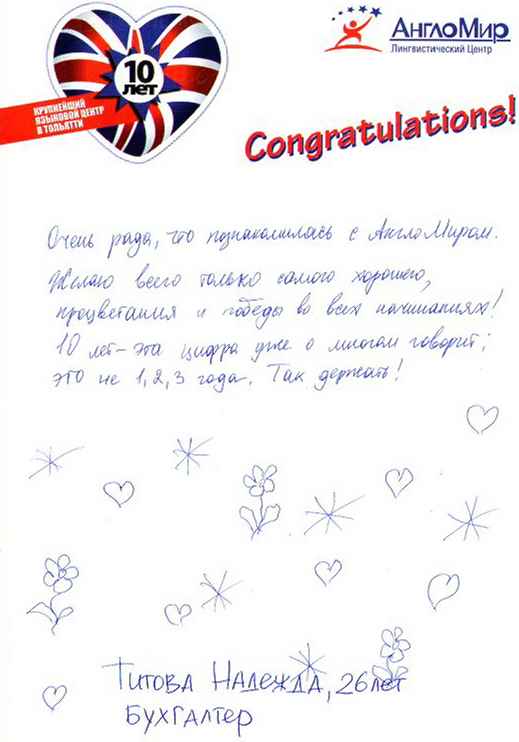 10
ЛЕТ
КРУПНЕЙШИЙ
ЯЗЫКОВОЙ ЦЕНТР
В ТОЛЬЯТТИ
АНГЛОМИР
ЛИНГВИСТИЧЕСКИЙ ЦЕНТР
Congratulations!
Очень рада, что познакомилась с АнглоМиром.
Желаю всего только самого хорошего,
процветания и победы во всех начинаниях!
10 лет – эта цифра уже о многом говорит;
это не 1, 2, 3 года. Так держать!
Титова Надежда, 26 лет
Бухгалтер